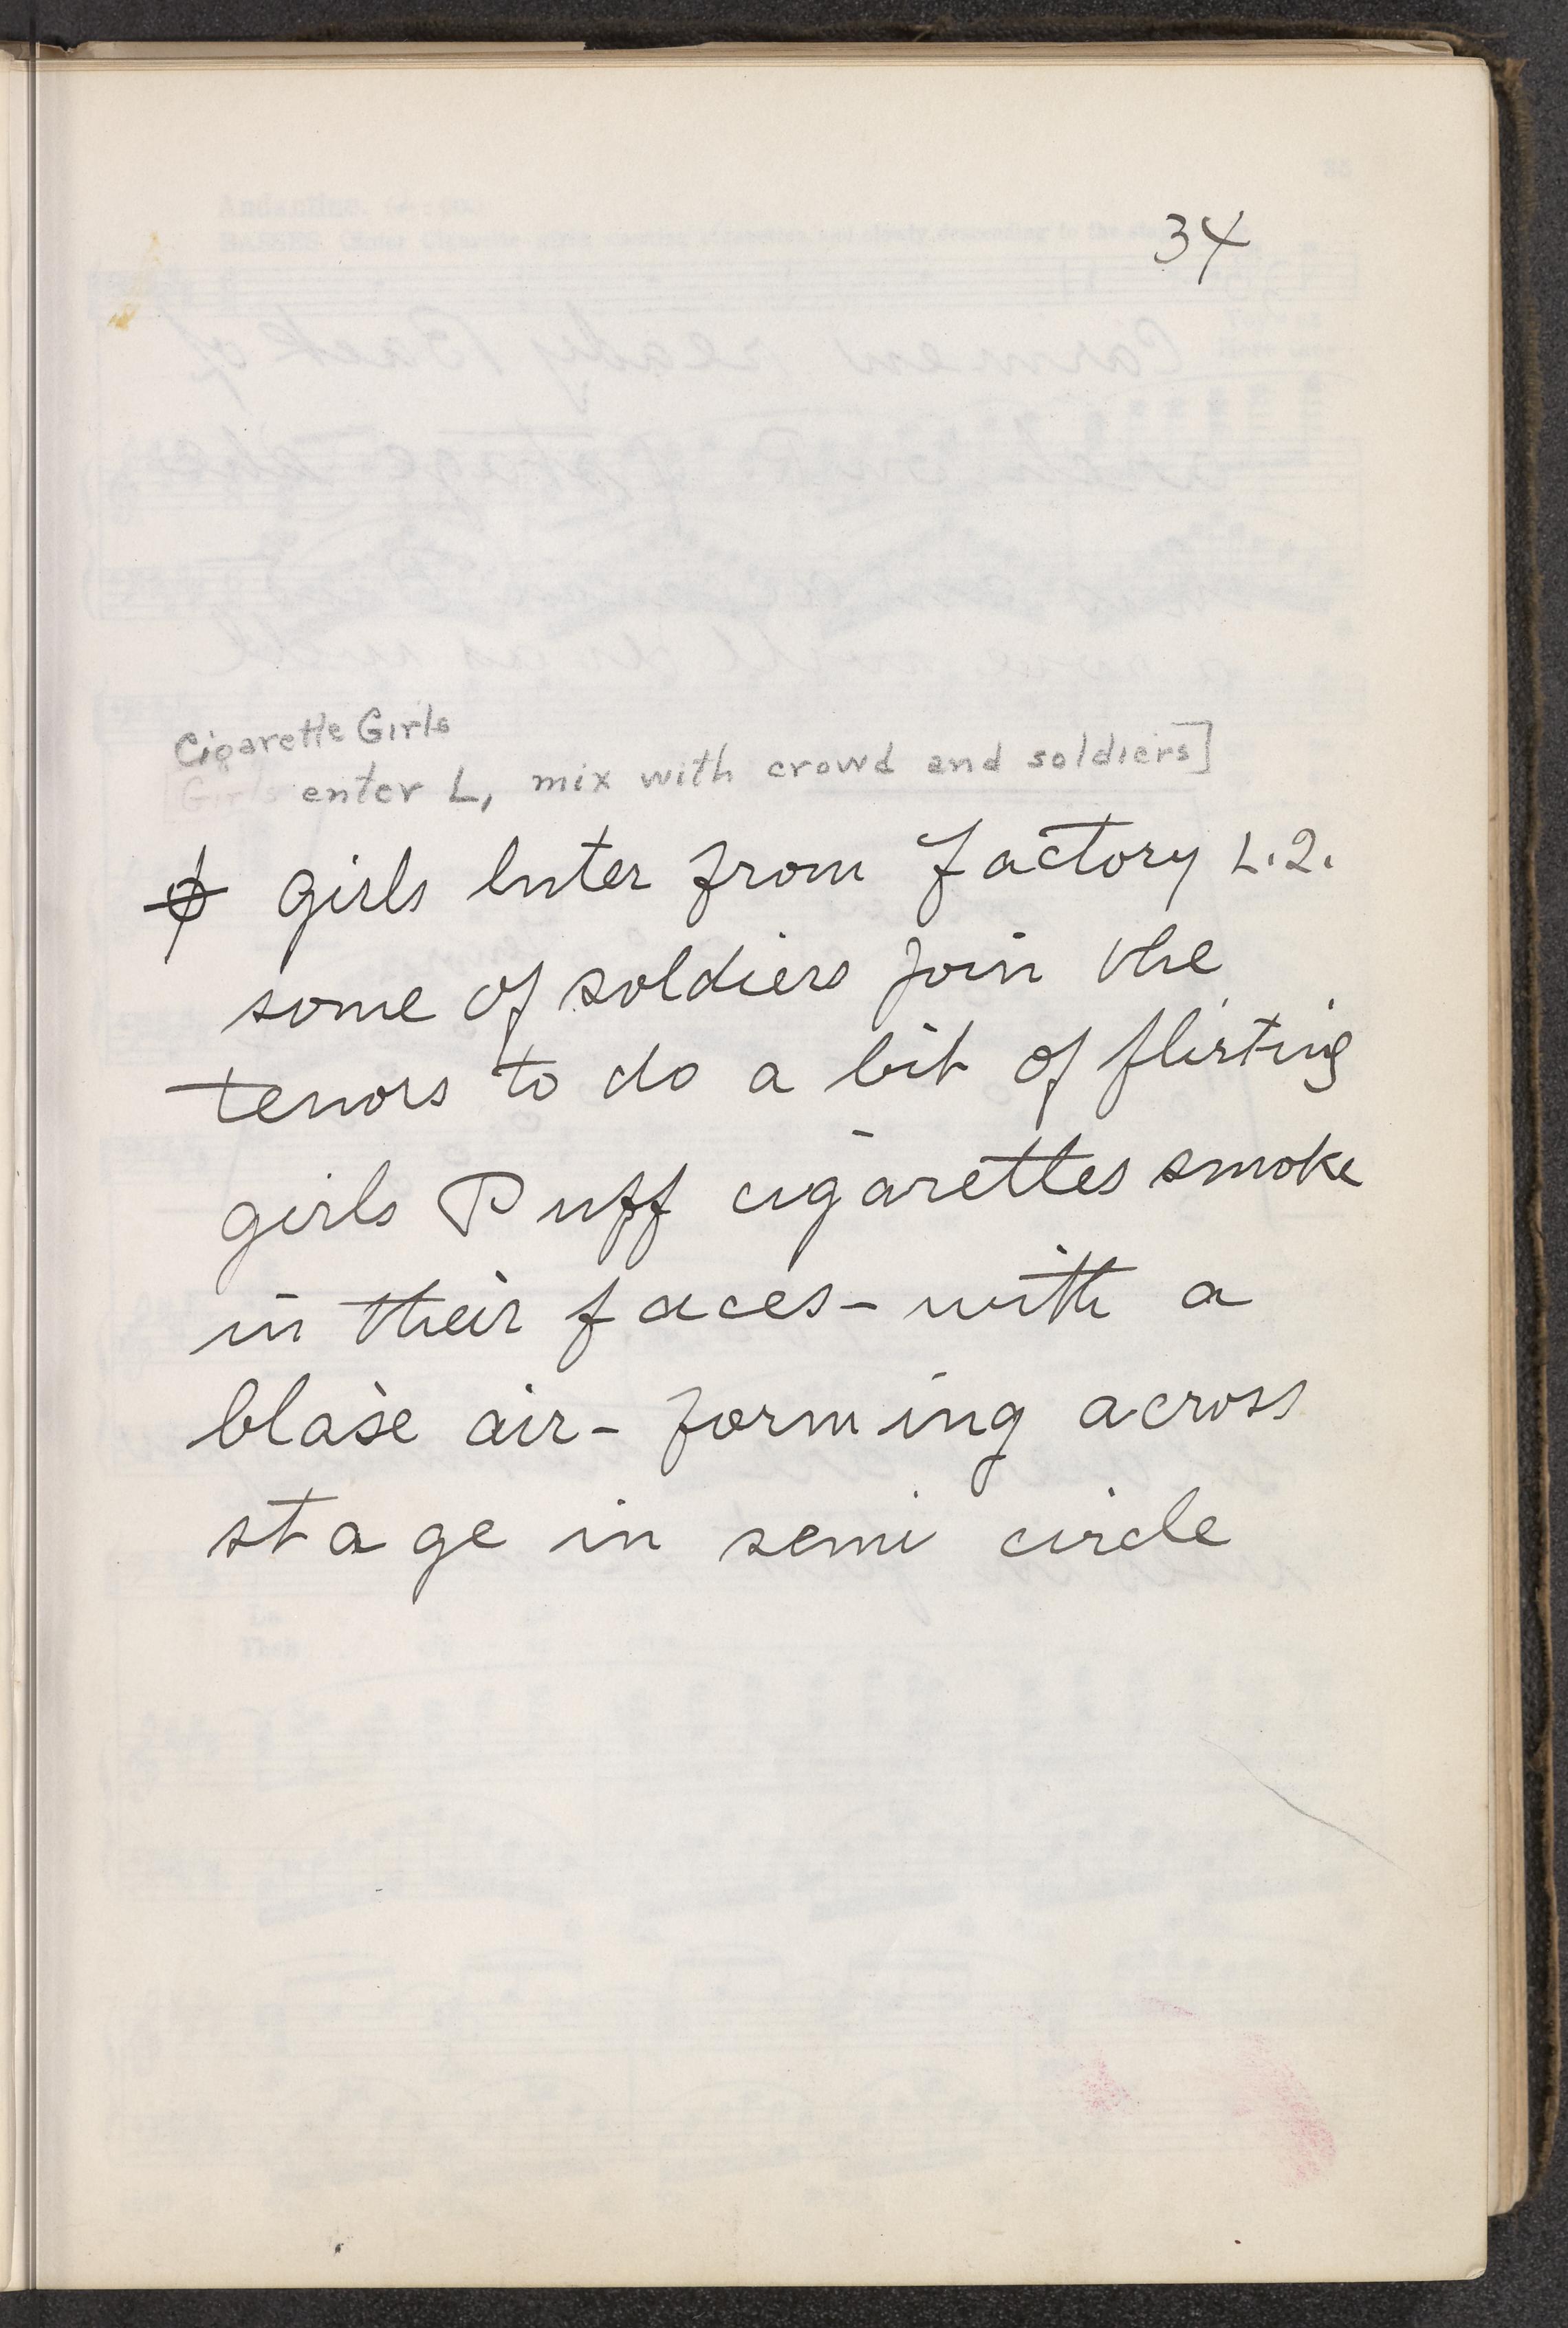 34
Cigarette Girls
[Girls enter L, mix with crowd and soldiers]
girls Enter from factory L.2.
some of soldiers join the
tenors to do a bit of flirting
girls Puff cigarettes smoke
in their faces - with a
blasè air - forming across
stage in semi circle